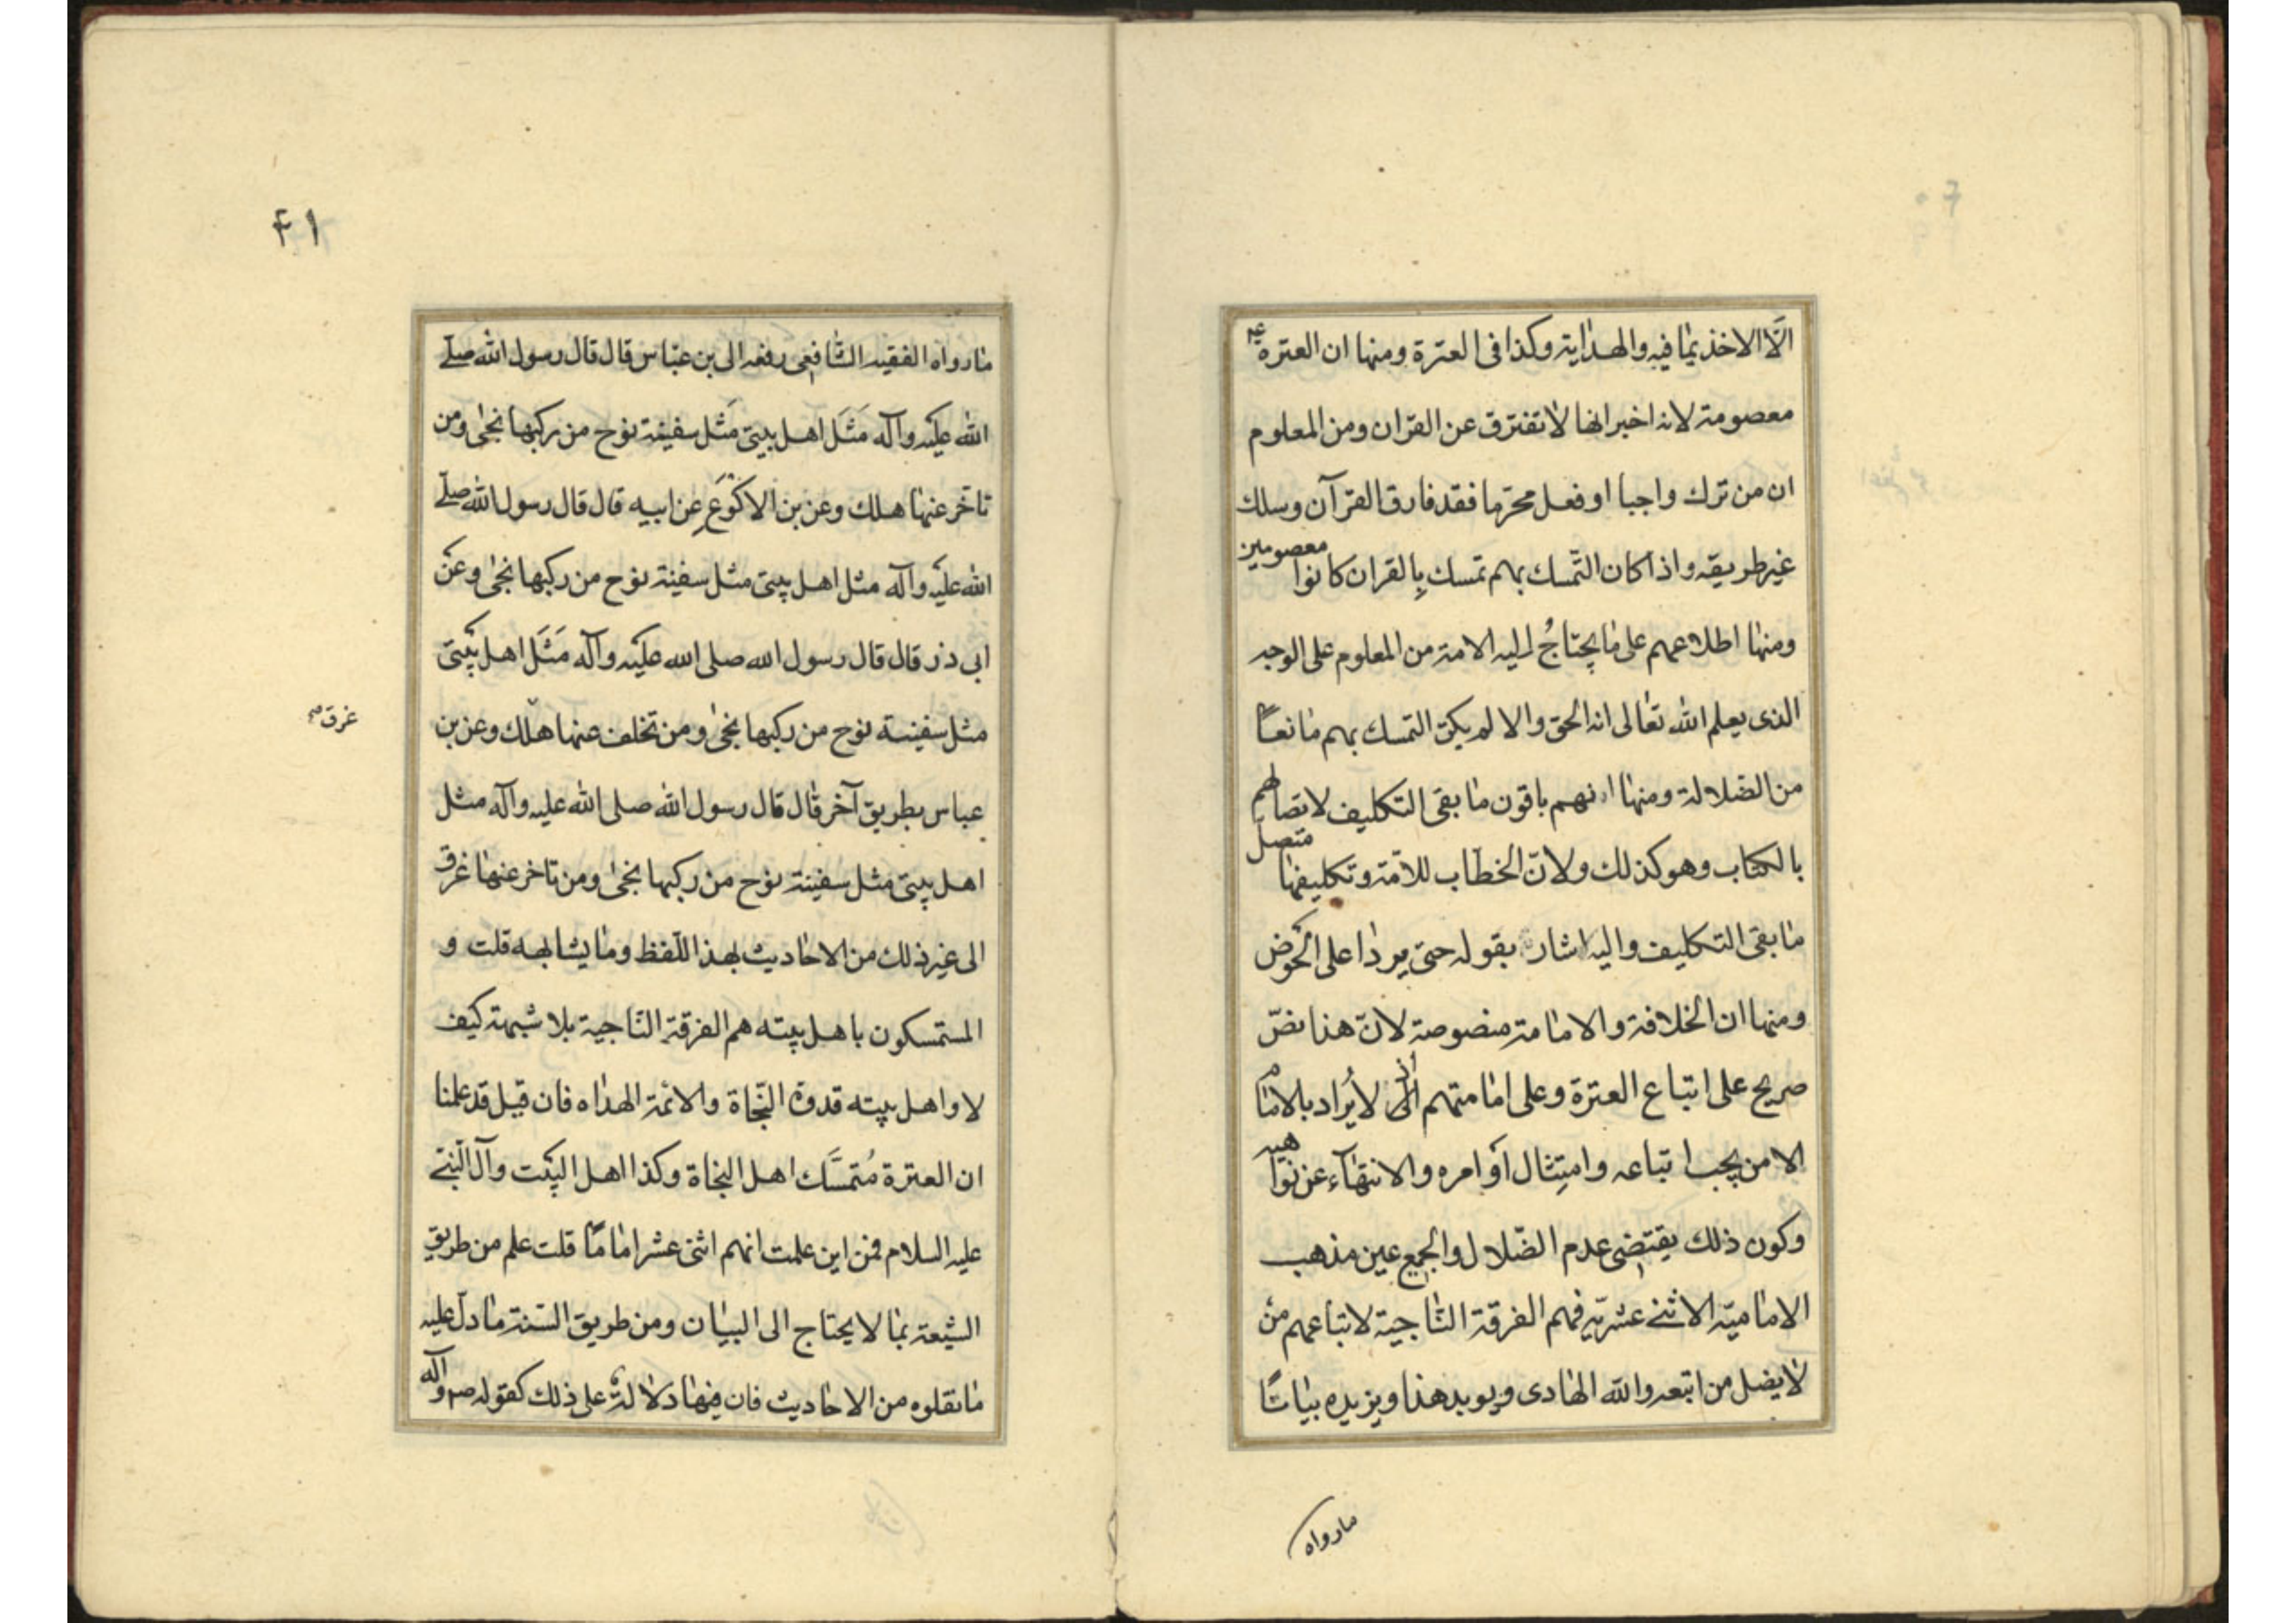 الّا الاخذ بما فيه والهداية وكذا فى العترة ومنها ان العترة ع
معصومة لانه اخبر انها لا تفترق عن القران ومن المعلوم
ان من ترك واجبا او فعل محرّما فقد فارق القرآن وسلك
غير طريقه واذا كان التّمسك بهم تمسك بِالقران كانوا معصومين
ومنها اطلاعهم على ما يحتاجُ اليه الامة من المعلوم على الوجه
الذى يعلم الله تعالى انه الحق والا لم يكن التمسك بهم مانعاً
من الضلالة ومنها انهم باقون ما بقى التكليف لاتصالهم
بالكتاب وهو كذلك ولانّ الخطاب للامّة وتكليفها متصل
ما بقى التكليف واليه اشار بقوله حتى يردا على الحوض
ومنها ان الخلافة والامامة منصوصة لانّ هذا نصّ
صريح على اتباع العترة وعلى امامتهم اذ لا يُراد بالامام
الا من يجب اتباعه وامتِثال أوامره والانتهاء عن نواهيه
وكون ذلك يقتضى عدم الضّلال والجميع عين مذهب
الاماميّة الاثنى عشريّة فهم الفرقة النّاجية لاتباعهم من
لا يضل من اتبعه والله الهادى ويويد هذا ويزيده بياناً
مارواه
٤١
ما رواه الفقيه الشافعى رفعه الى بن عبّاس قال قال رسول الله صلّى
الله عليه وآله مَثَل اهل بيتى مَثَل سفينة نوح من ركبها نجى ومن
تاخّر عنها هلك وعن بن الاكْوَعِ عن ابيه قال قال رسول الله صلّى
الله عليه وآله مثل اهل بيتى مثل سفينة نوح من ركبها نجى وعن
ابى ذر قال قال رسول الله صلى الله عليه وآله مَثَل اهل بيتى
مثل سفينة نوح من ركبها نجى ومن تخلف عنها هلك وعن بن
غرق
عباس بطريق آخر قال قال رسول الله صلى الله عليه وآله مثل
اهل بيتى مثل سفينة نوح من ركبها نجى ومن تاخر عنها غرق
الى غير ذلك من الاحاديث بهذا اللّفظ وما يشابهه قلت و
المستمسكون باهل بيته هم الفرقة النّاجية بلا شبهة كيف
لا واهل بيته قدوة النّجاة والائمّة الهداه فان قيل قد علمنا
ان العترة مُتمسَّك اهل النجاة وكذا اهل البيت وآل النّبى
عليه السلام فمن اين علمت انهم اثنى عشر اماماً قلت علم من طريق
الشيعة بما لا يحتاج الى البيان ومن طريق السّنة ما دلّ عليه
ما نقلوه من الاحاديث فان فيها دلالة على ذلك كقوله ص وآله